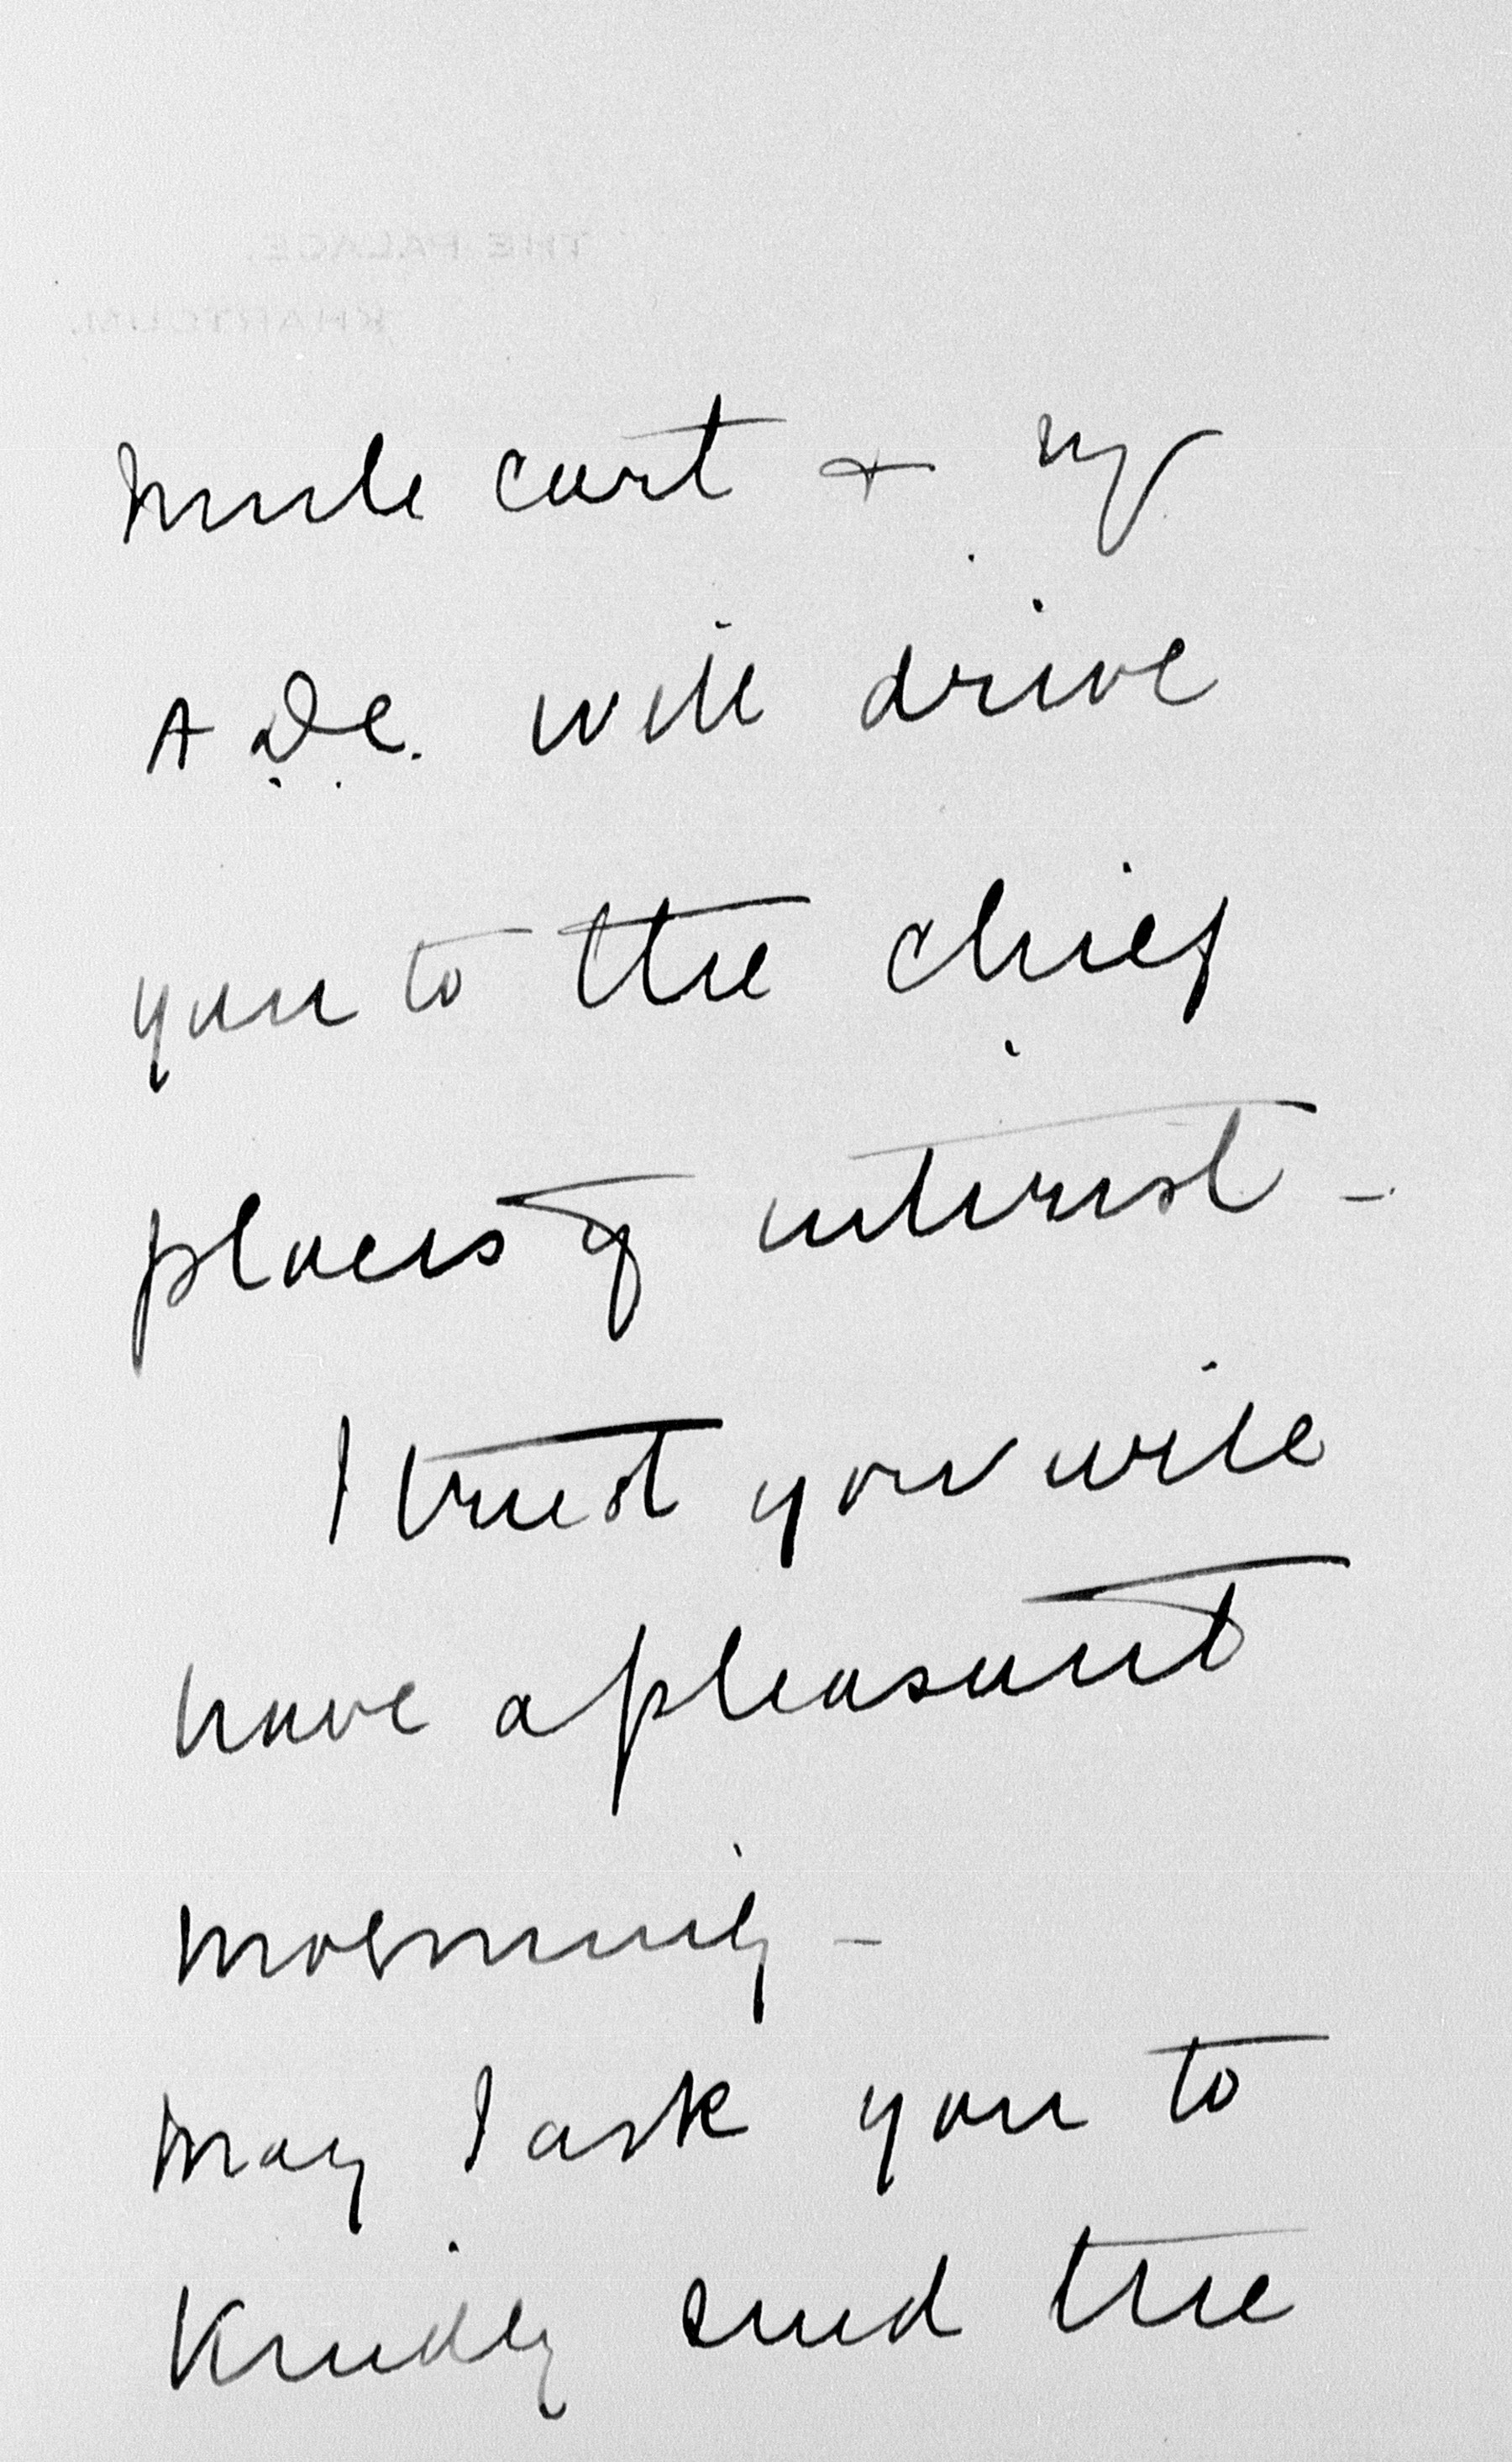 THE PALACE.
KHARTOUM.
mule cart + my
A.D.C. will drive
you to the chief
places of interest -
I trust you will
have a pleasant
morning -
may I ask you to
kindly send the